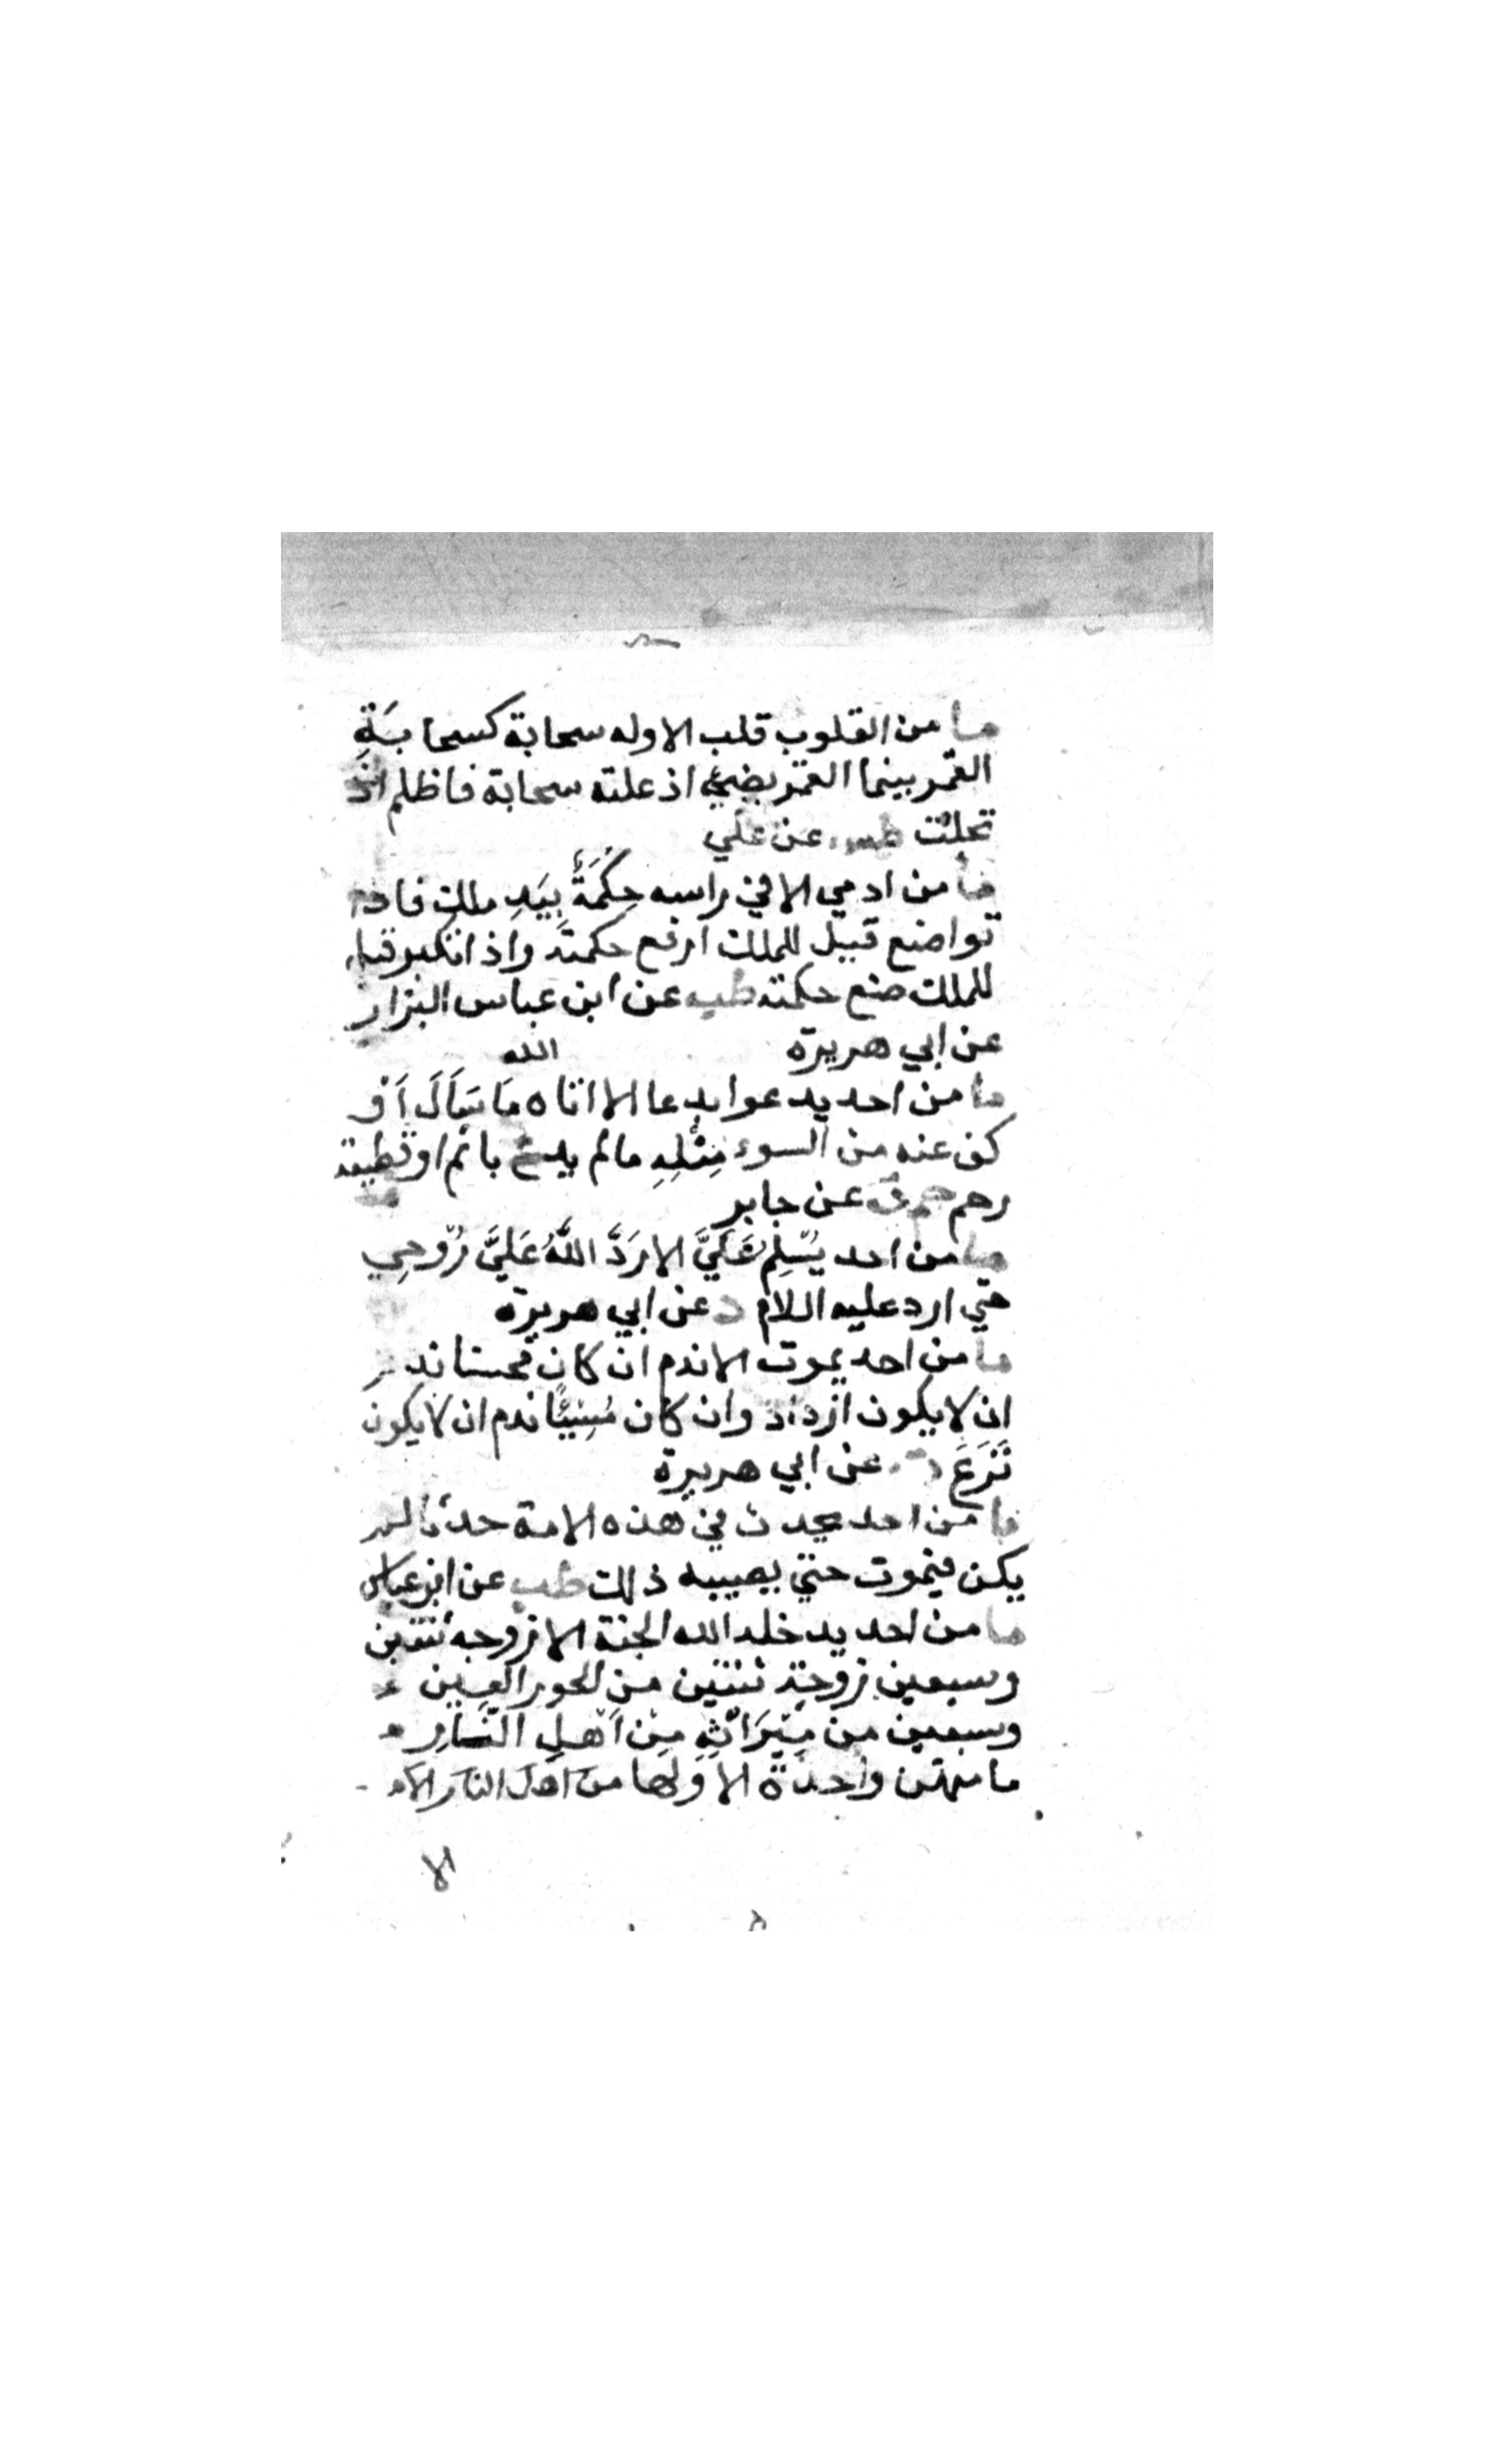 ما من القلوب قلب الا وله سحابة كسحابة
القمر بينما القمر يضيء اذ علته سحابة فاظلم اذ
تجلت طس عن علي
ما من ادمي الا في راسه حِكَمَةٌ بِيَدِ ملك فاذا
تواضع قيل للملك ارفع حكمته واذا تكبر قيل
للملك ضع حكمته طب عن ابن عباس البزار
عن ابي هريرة
الله
ما من احد يدعوا بدعا الا اتاه مَا سَأَلَ اَو
كف عنه من السوء مِثْلِهِ مالم يدع باثم او قطيعة
رحم حم ت عن جابر
ما من احد يُسَلِّم عَلَيَّ الا رَدَّ اللَّهُ عَلَيَّ رُوحِي
حتي ارد عليه اللام د عن ابي هريرة
ما من احد يموت الا ندم ان كان محسنا ندم
ان لا يكون ازداد وان كان مُسِيئًا ندم ان لا يكون
نَزَعَ ت عن ابي هريرة
ما من احد يحدث في هذه الامة حدثا لم
يكن فيموت حتي يصيبه ذلك طب عن ابن عباس
ما من احد يدخله الله الجنة الا زوجه ثنتين
وسبعين زوجة ثنتين من الحور العين
وسبعين من مِيْرَاثِهِ مِنْ اَهْلِ النَّارِ
ما منهن واحدة الا ولها من اهل النار الا
الا